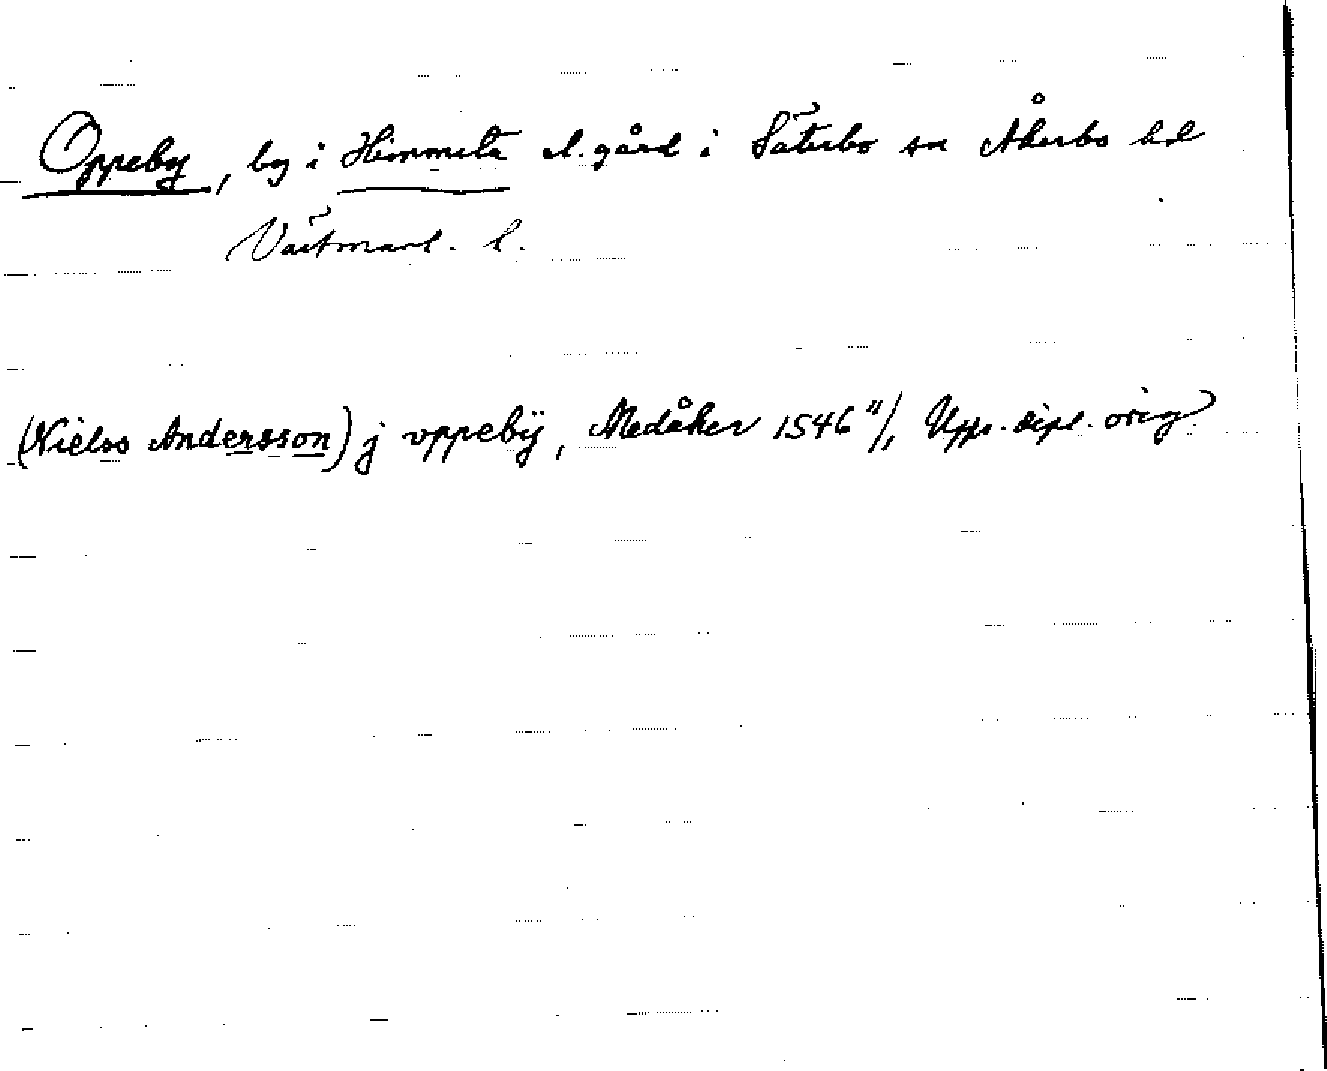 Oppeby, by i Himmeta el. gård i Säterbo sn Åkerbo hd
Västmanl. l.
(Nielss Andersson) j oppebÿ, Medåker 1546 11/1 Upps. dipl. orig.